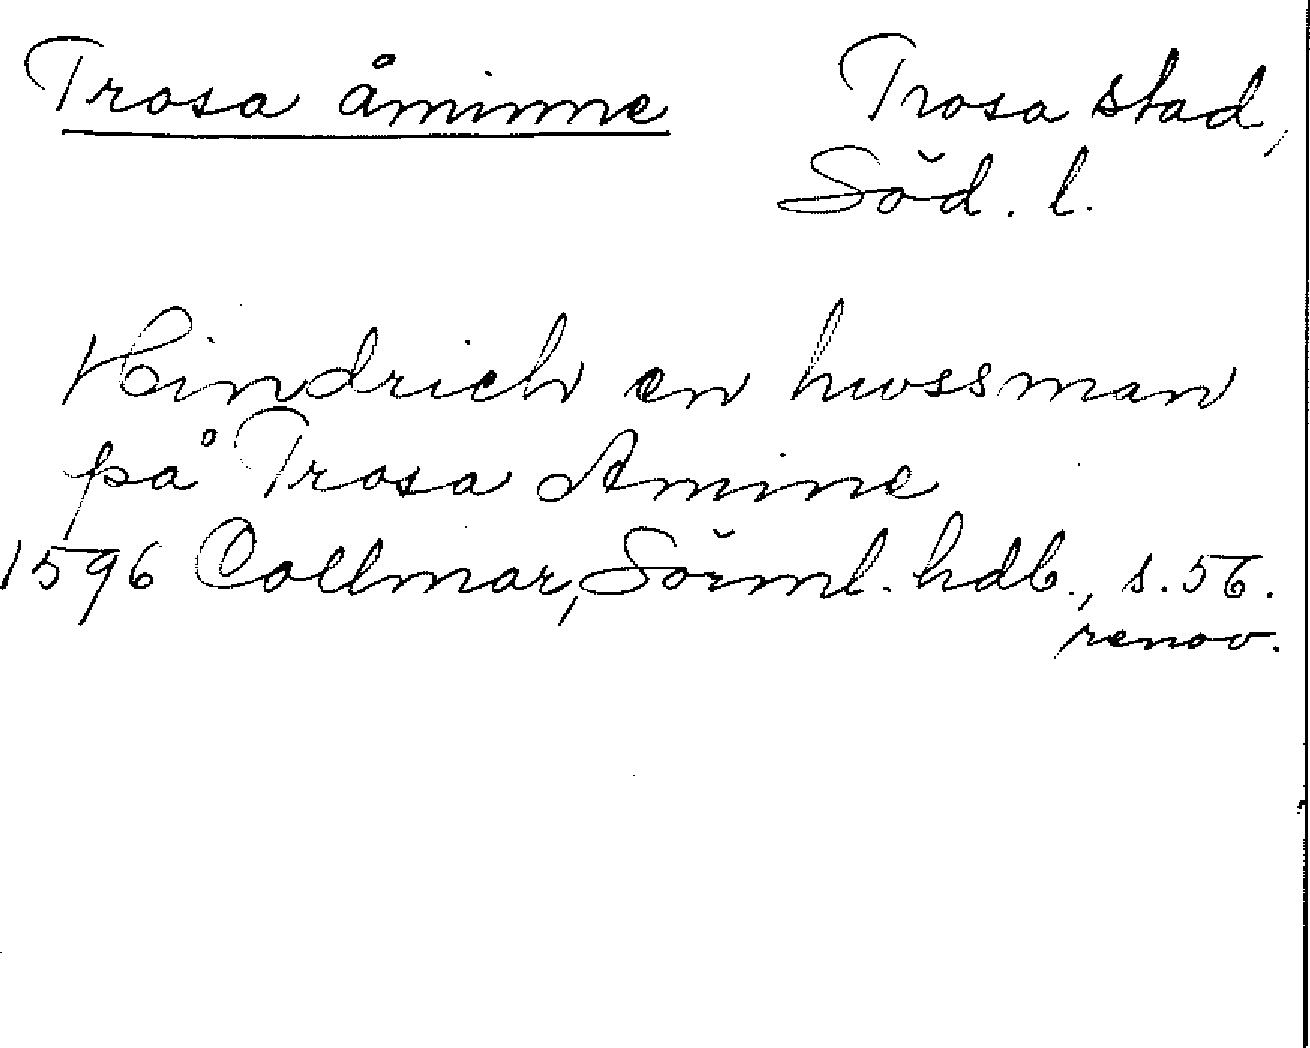 Trosa åminne Trosa stad,
Söd. l.
Hindrich en hussman
på Trosa Amine
1596 Collmar, Sörml. hdb., s. 56.
renov.